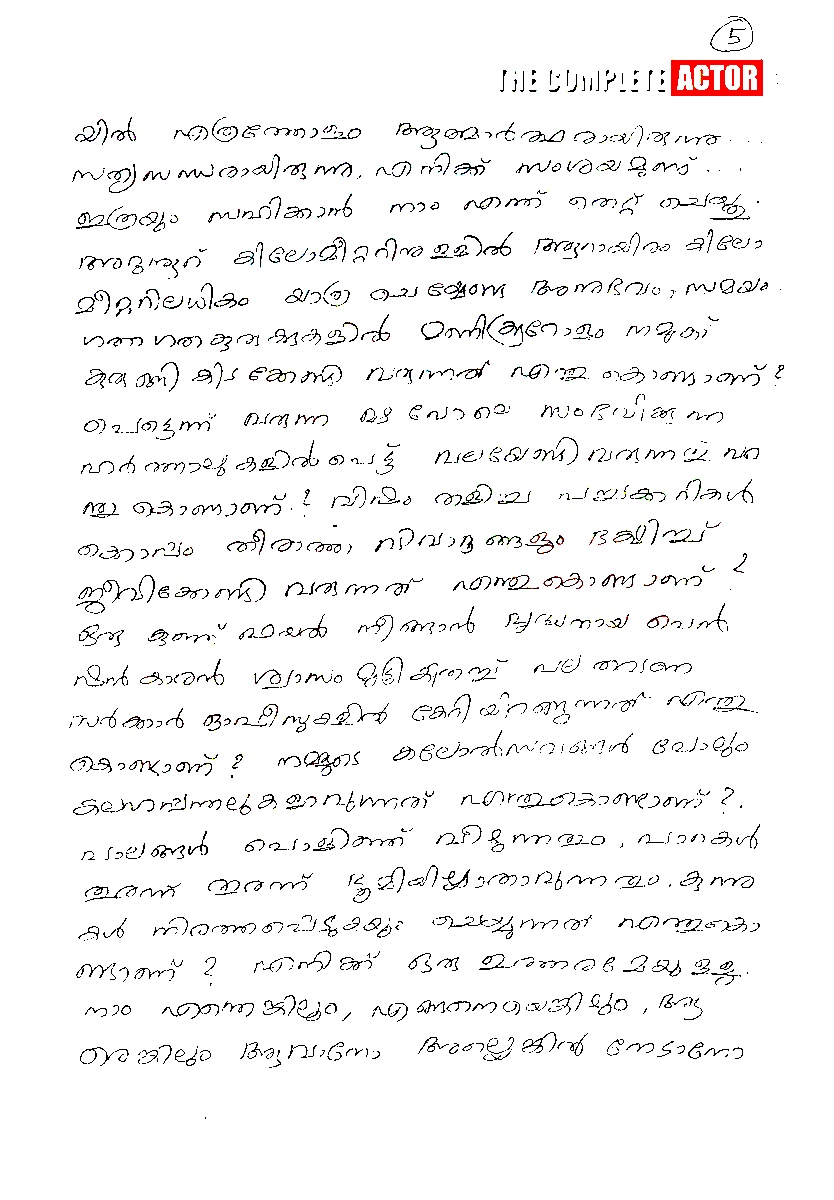 5
THE COMPLETE ACTOR
യിൽ എത്രത്തോളം ആത്മാർത്ഥരായിരുന്നു...
സത്യസന്ധരായിരുന്നു. എനിക്ക് സംശയമുണ്ട്...
ഇത്രയും സഹിക്കാൻ നാം എന്ത് തെറ്റ് ചെയ്തു.
അറുന്നൂറ് കിലോമീറ്ററിനുള്ളിൽ ആറായിരം കിലോ
മീറ്ററിലധികം യാത്ര ചെയ്യേണ്ട അനുഭവം, സമയം.
ഗതാഗതകുരുക്കുകളിൽ മണിക്കൂറോളം നമുക്ക്
കുരുങ്ങി കിടക്കേണ്ടി വരുന്നത് എന്തു കൊണ്ടാണ്?
പെട്ടെന്ന് വരുന്ന മഴ പോലെ സംഭവിക്കുന്ന
ഹർത്താലുകളിൽപെട്ട് വലയേണ്ടിവരുന്നത് എ
ന്തു കൊണ്ടാണ്.? വിഷം തളിച്ച പച്ചക്കറികൾ
ക്കൊപ്പം തീരാത്ത വിവാദങ്ങളും ഭക്ഷിച്ച്
ജീവിക്കേണ്ടി വരുന്നത് എന്തുകൊണ്ടാണ്?
ഒരു കുഞ്ഞ് ഫയൽ നീങ്ങാൻ വൃദ്ധനായ പെൻ
ഷൻകാരൻ ശ്വാസം മുട്ടി കിതച്ച് പല തവണ
സർക്കാർ ഓഫീസുകളിൽ കേറിയിറങ്ങുന്നത് എന്തു
കൊണ്ടാണ്? നമ്മുടെ കലോൽസവങ്ങൾ പോലും
കലാപങ്ങളുകളാവുന്നത് എന്തുകൊണ്ടാണ്?.
പാലങ്ങൾ പൊളിഞ്ഞ് വീഴുന്നതും, പാറകൾ
തുരന്ന് തുരന്ന് ഭൂമിയില്ലാതാവുന്നതും. കുന്നു
കൾ നിരത്തപ്പെടുകയും ചെയ്യുന്നത് എന്തുകൊ
ണ്ടാണ്? എനിക്ക് ഒരു ഉത്തരമേയുള്ളൂ.
നാം എന്തെങ്കിലും, എങ്ങനെയെങ്കിലും, ആ
രെങ്കിലും ആവാനോ അല്ലെങ്കിൽ നേടാനോ